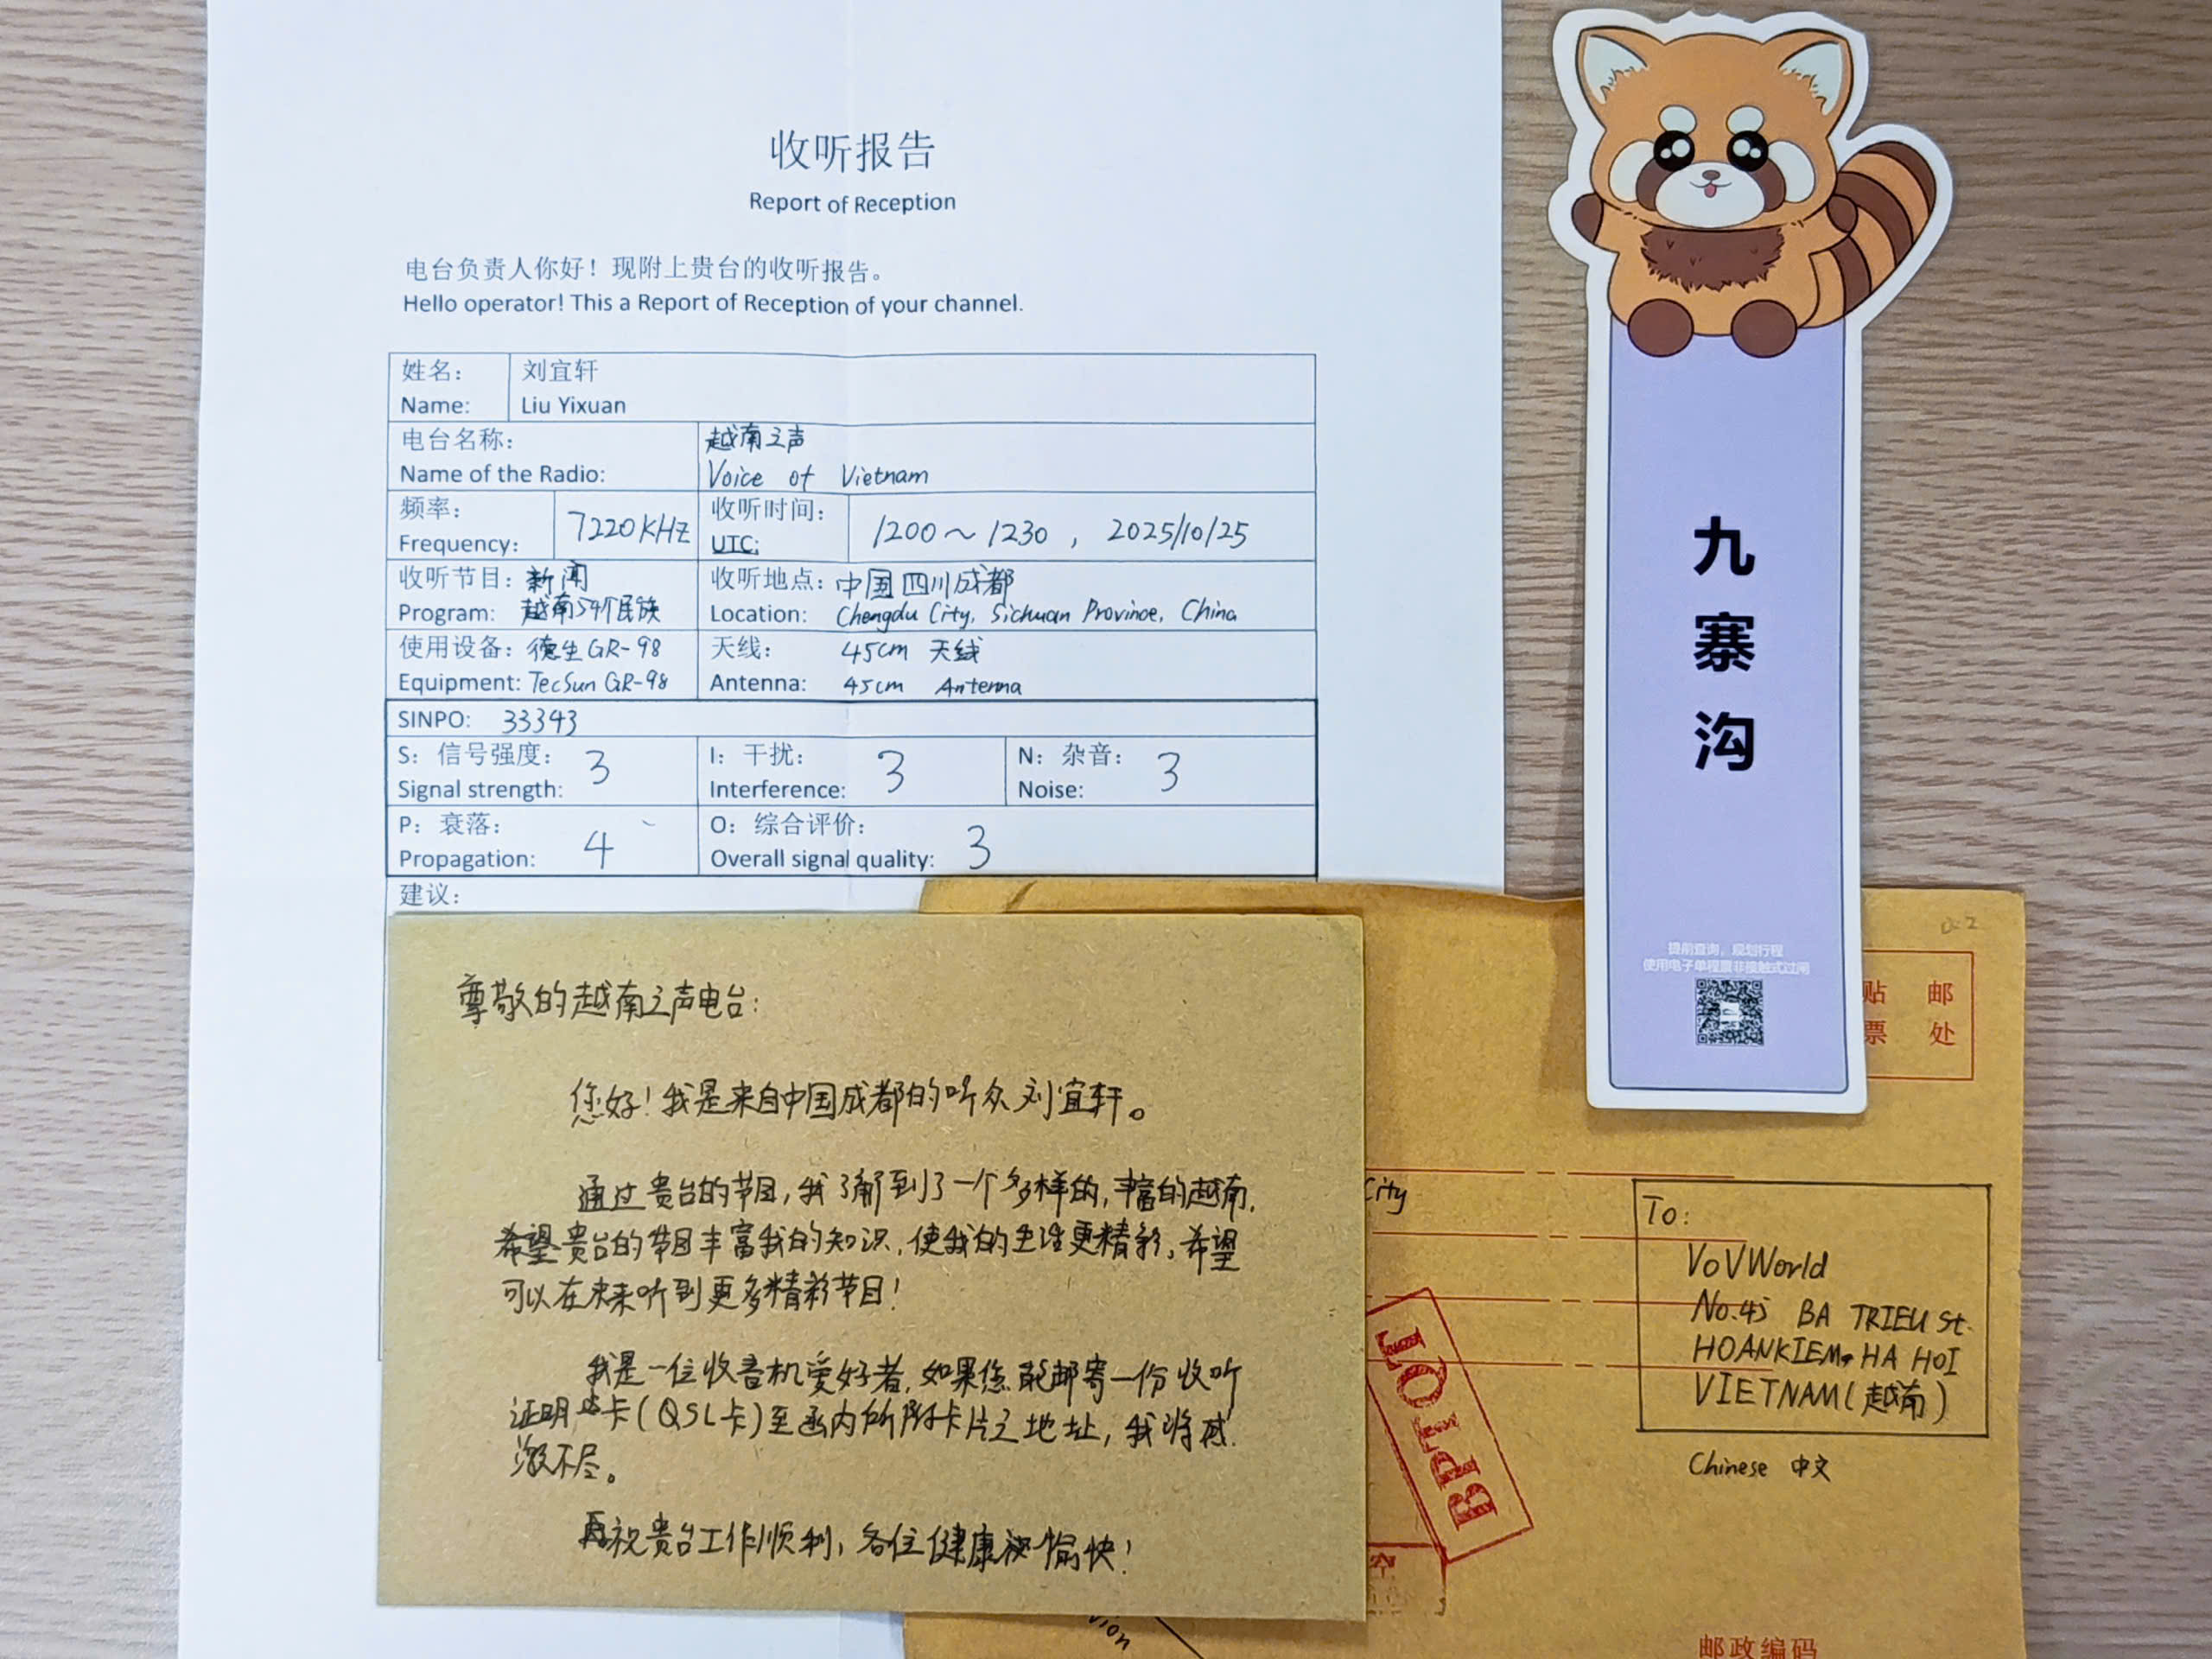 收听报告
Report of Reception
电台负责人你好！现附上贵台的收听报告。
Hello operator! This a Report of Reception of your channel.
姓名： 刘宜轩
Name: Liu Yixuan
电台名称： 越南之声
Name of the Radio: Voice of Vietnam
频率： 7220KHz 收听时间： 1200～1230，2025/10/25
Frequency: UTC:
收听节目：新闻 收听地点：中国四川成都
Program: 越南54个民族 Location: Chengdu City, Sichuan Province, China
使用设备：德生GR-98 天线： 45cm 天线
Equipment: TecSun GR-98 Antenna: 45cm Antenna
SINPO: 33343
S：信号强度： 3 I：干扰： 3 N：杂音： 3
Signal strength: Interference: Noise:
P：衰落： 4 O：综合评价： 3
Propagation: Overall signal quality:
建议：
尊敬的越南之声电台：
您好！我是来自中国成都的听众刘宜轩。
通过贵台的节目，我了解到了一个多样的，丰富的越南。
希望贵台的节目丰富我的知识，使我的生活更精彩。希望
可以在未来听到更多精彩节目！
我是一位收音机爱好者，如果您能邮寄一份收听
证明卡（QSL卡）至函内所附卡片之地址，我将感
激不尽。
再祝贵台工作顺利，各位健康愉快！
九寨沟
提前查询，规划行程
使用电子单程票非接触式过闸
贴 邮
票 处
City
To:
VOVWorld
No.45 BA TRIEU St.
HOANKIEM, HA HOI
VIETNAM(越南)
Chinese 中文
BPTOL
邮政编码